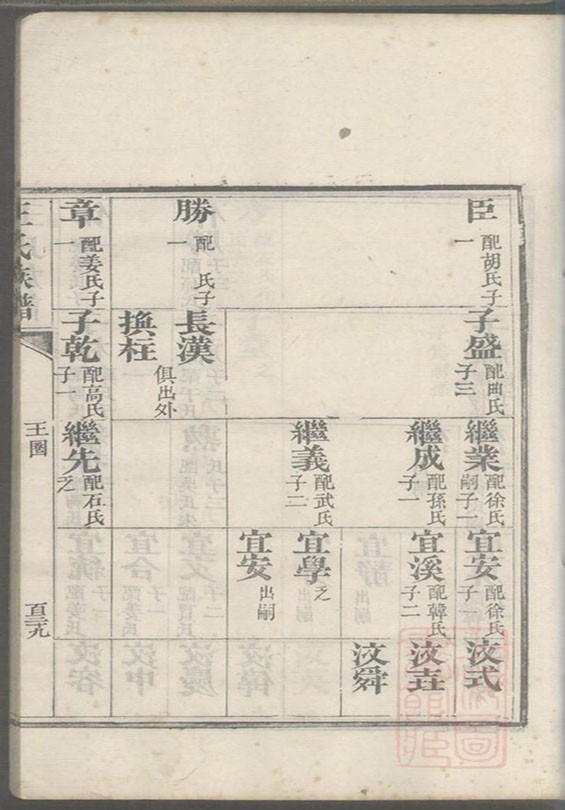 臣 配胡氏子一
子盛 配曲氏子三
繼業 配徐氏嗣子一
宜安 配徐氏子一
汝式
繼成 配孫氏子一
宜溪 配韓氏子二
汝垚
汝舜
繼義 配武氏子二
宜學 乏
宜安 出嗣
勝 配 氏子一
長漢
換柱
俱出外
章 配姜氏子一
子乾 配高氏子一
繼先 配石氏乏
王氏族譜
王圈
百三九